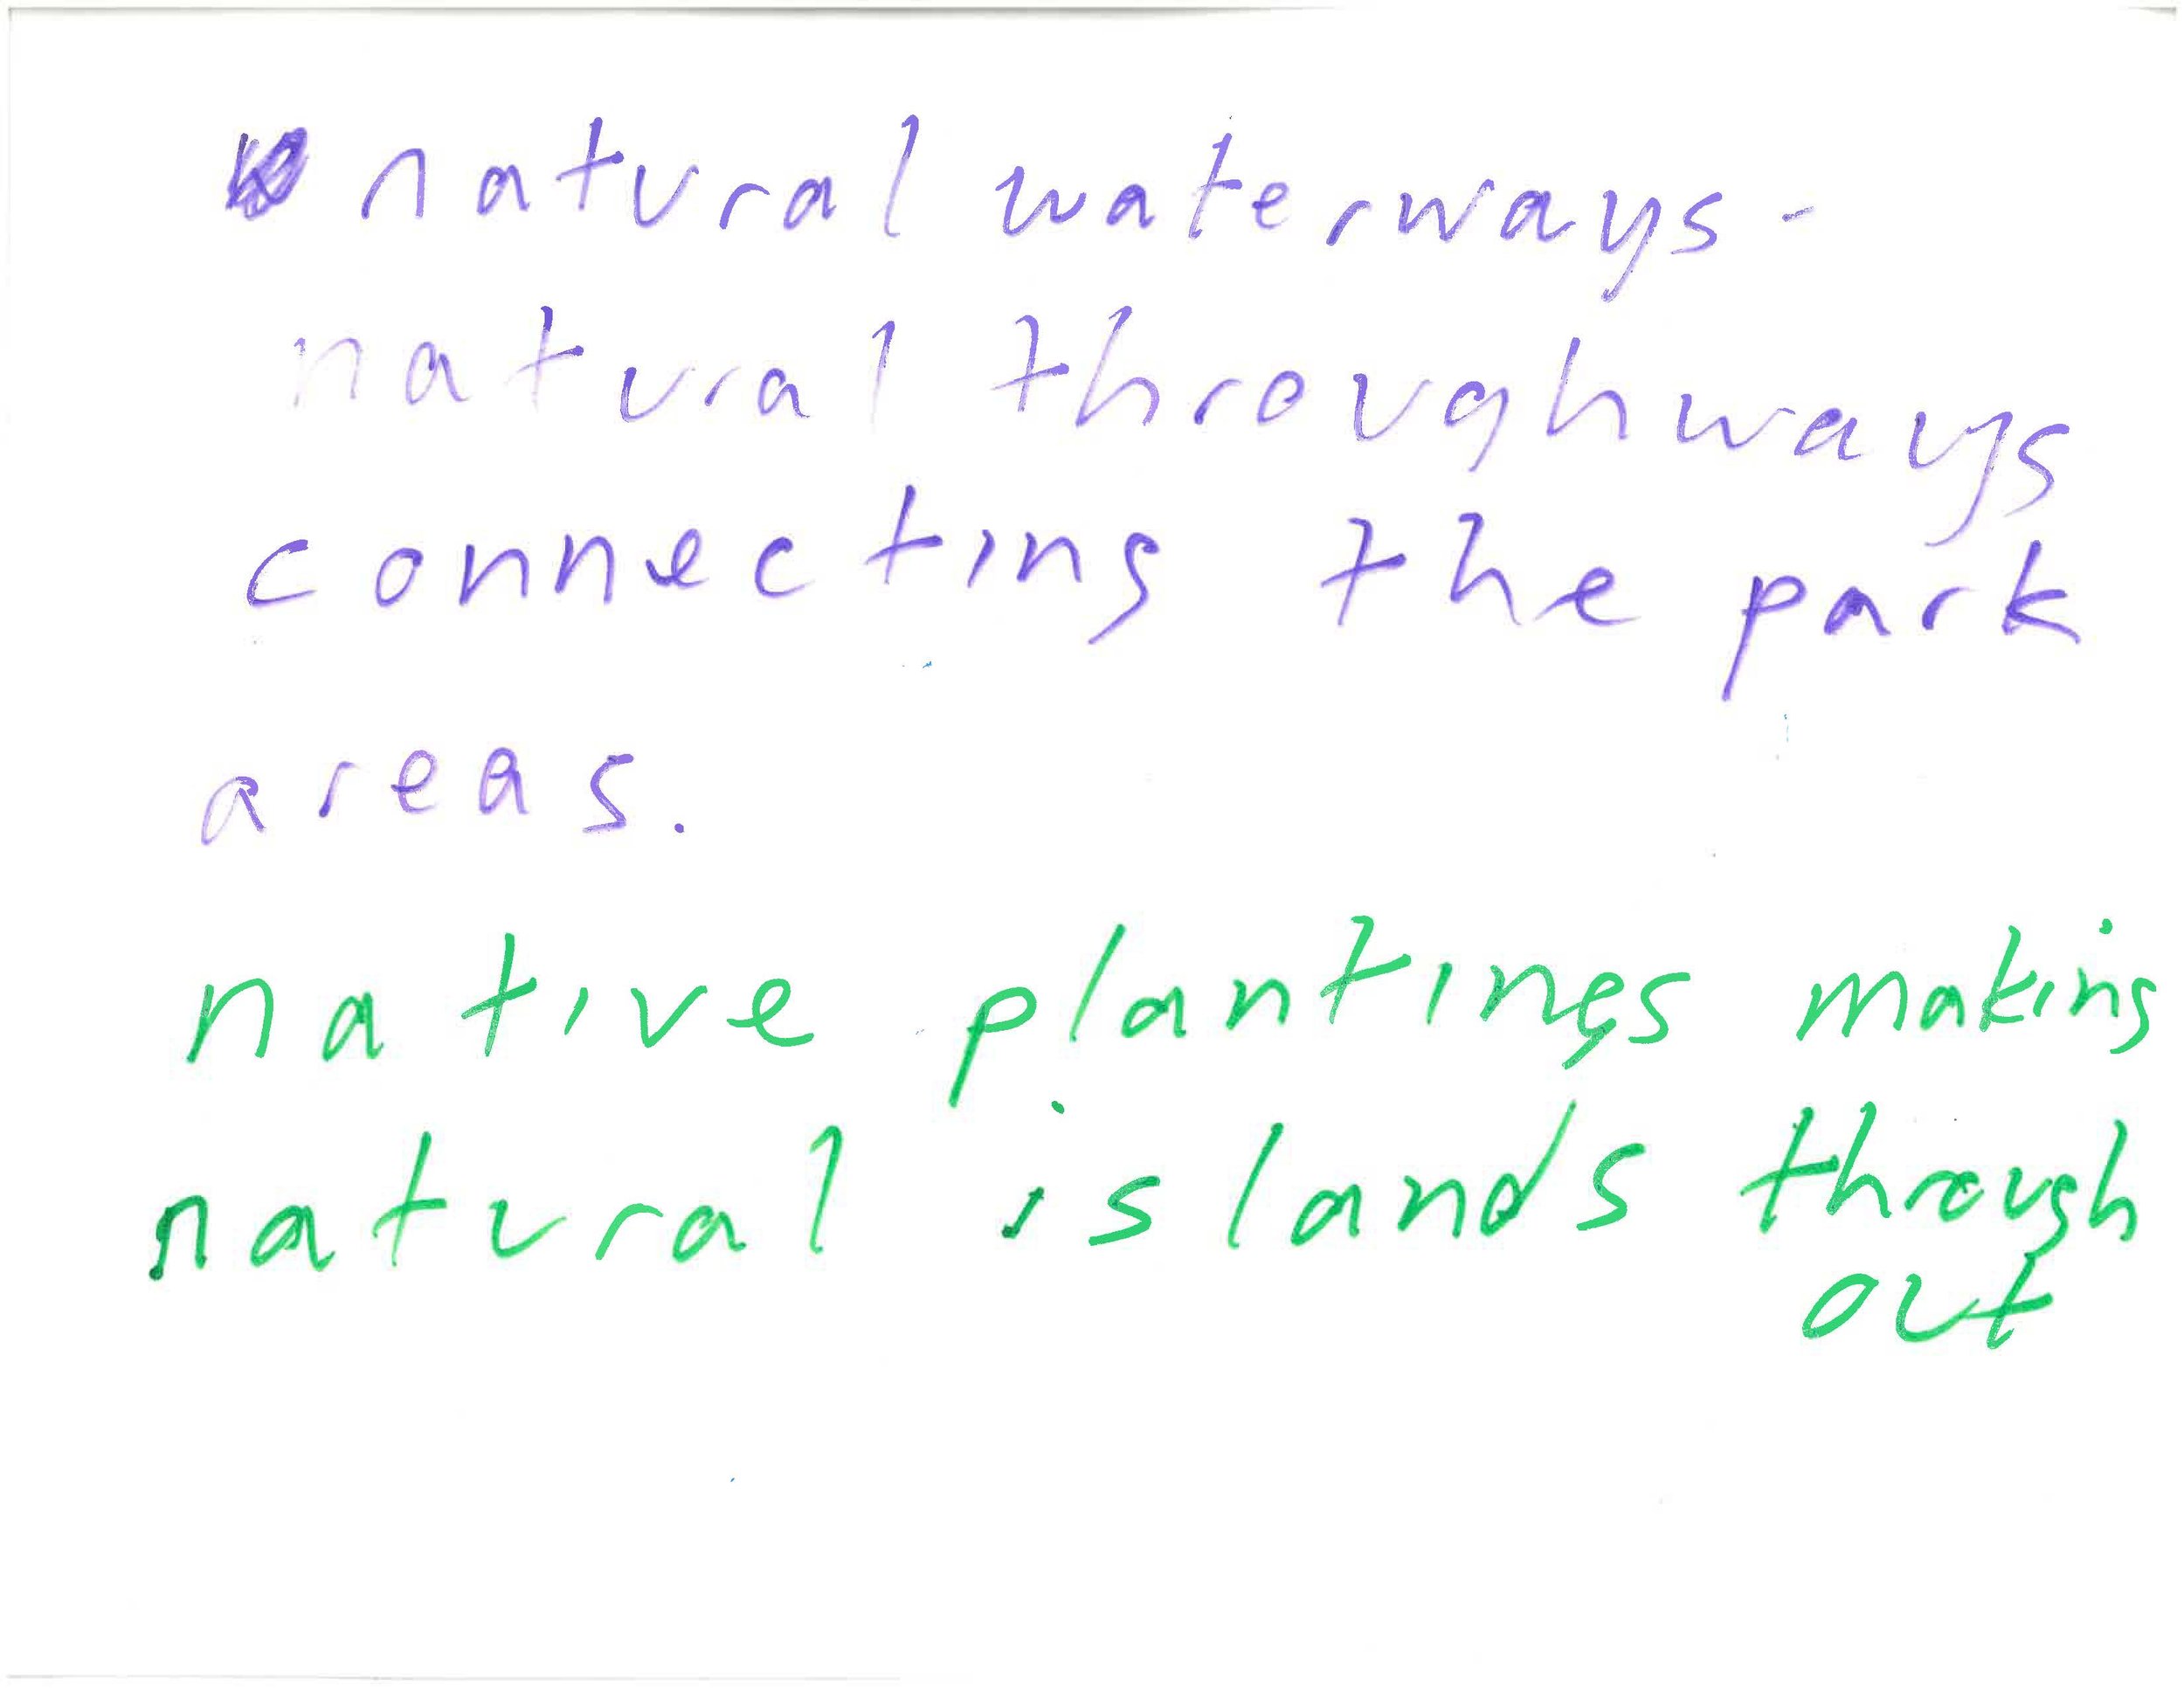 natural waterways-
natural throughways
connecting the park
areas.
native plantings making
natural islands through
out